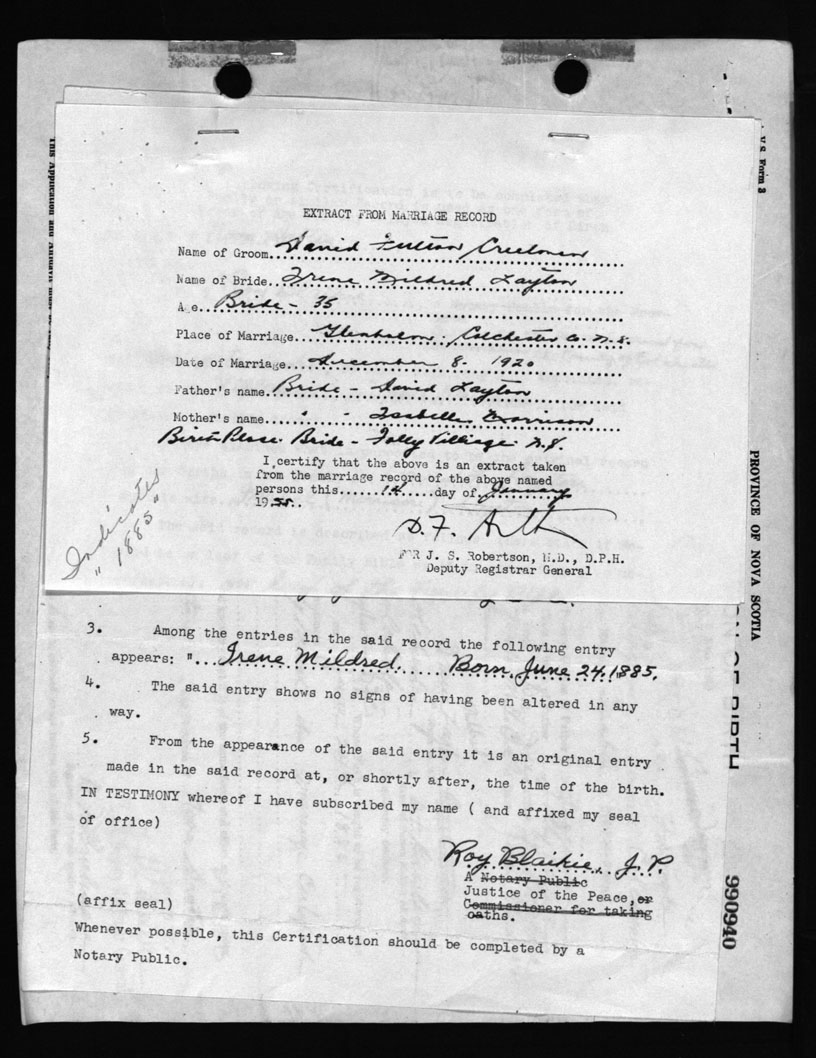 V.S. Form 3
EXTRACT FROM MARRIAGE RECORD
Name of Groom...David Fulton Creelman
Name of Bride...Irene Mildred Layton
Age...Bride - 35
Place of Marriage...Glenholme, Colchester Co. N.S.
Date of Marriage...December 8. 1920
Father's name...Bride - David Layton
Mother's name... " - Isabelle Morrison
Birth Place. Bride - Folly Villiage N.S.
I certify that the above is an extract taken
from the marriage record of the above named
persons this......14.....day of January
1955..
FOR J. S. Robertson, M.D., D.P.H.
Deputy Registrar General
Indicates
"1885"
3. Among the entries in the said record the following entry
appears: "...Irene Mildred......Born June 24.1885.
4. The said entry shows no signs of having been altered in any
way.
5. From the appearance of the said entry it is an original entry
made in the said record at, or shortly after, the time of the birth.
IN TESTIMONY whereof I have subscribed my name ( and affixed my seal
of office)
Roy Blaikie, J.P.
A Notary Public
Justice of the Peace, or
Commissioner for taking
oaths.
(affix seal)
Whenever possible, this Certification should be completed by a
Notary Public.
PROVINCE OF NOVA SCOTIA
OF BIRTH
990940